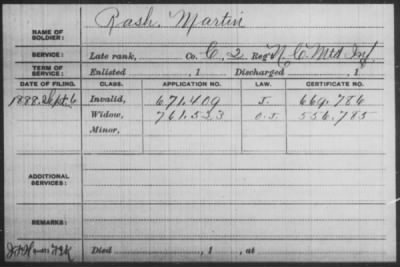 NAME OF SOLDIER: Rash, Martin
SERVICE: Late rank, Co. C, 2 Reg't N.C. Mtd Inf
TERM OF SERVICE: Enlisted , 1 Discharged , 1
DATE OF FILING. CLASS. APPLICATION NO. LAW. CERTIFICATE NO.
1888. Sept. 6 Invalid, 671.409 J. 669.786
Widow, 761.533 O.J. 556.785
Minor,
ADDITIONAL SERVICES:
REMARKS:
Died , 1 , at